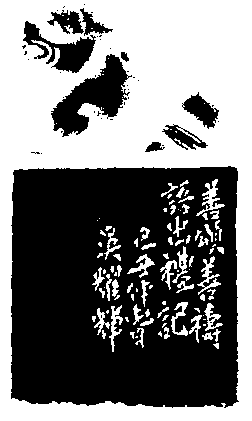 善頌善禱
語出禮記
己丑作者
吳耀輝